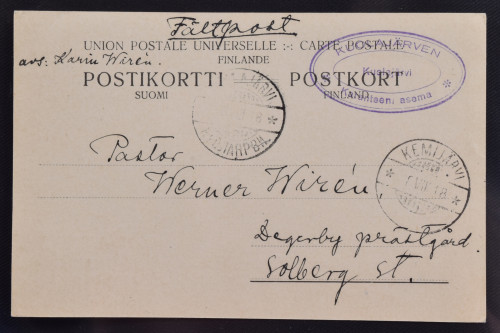 Fältpost
UNION POSTALE UNIVERSELLE :-: CARTE POSTALE
FINLANDE
avs: Karin Wirén.
POSTIKORTTI POSTKORT
SUOMI FINLAND
KUOLAJÄRVEN
Kuolajärvi
asema
KEMIJÄRVI
Pastor
Werner Wirén
Degerby prästgård.
Solberg st.